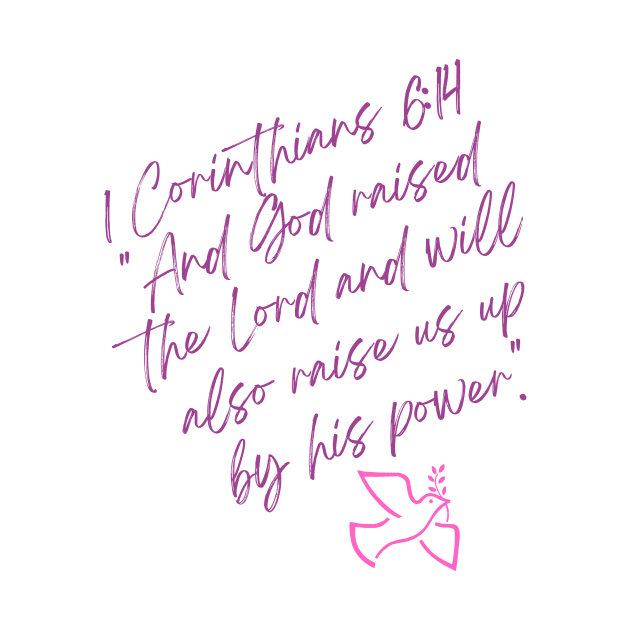 1 Corinthians 6:14
"And God raised
the Lord and will
also raise us up
by his power".